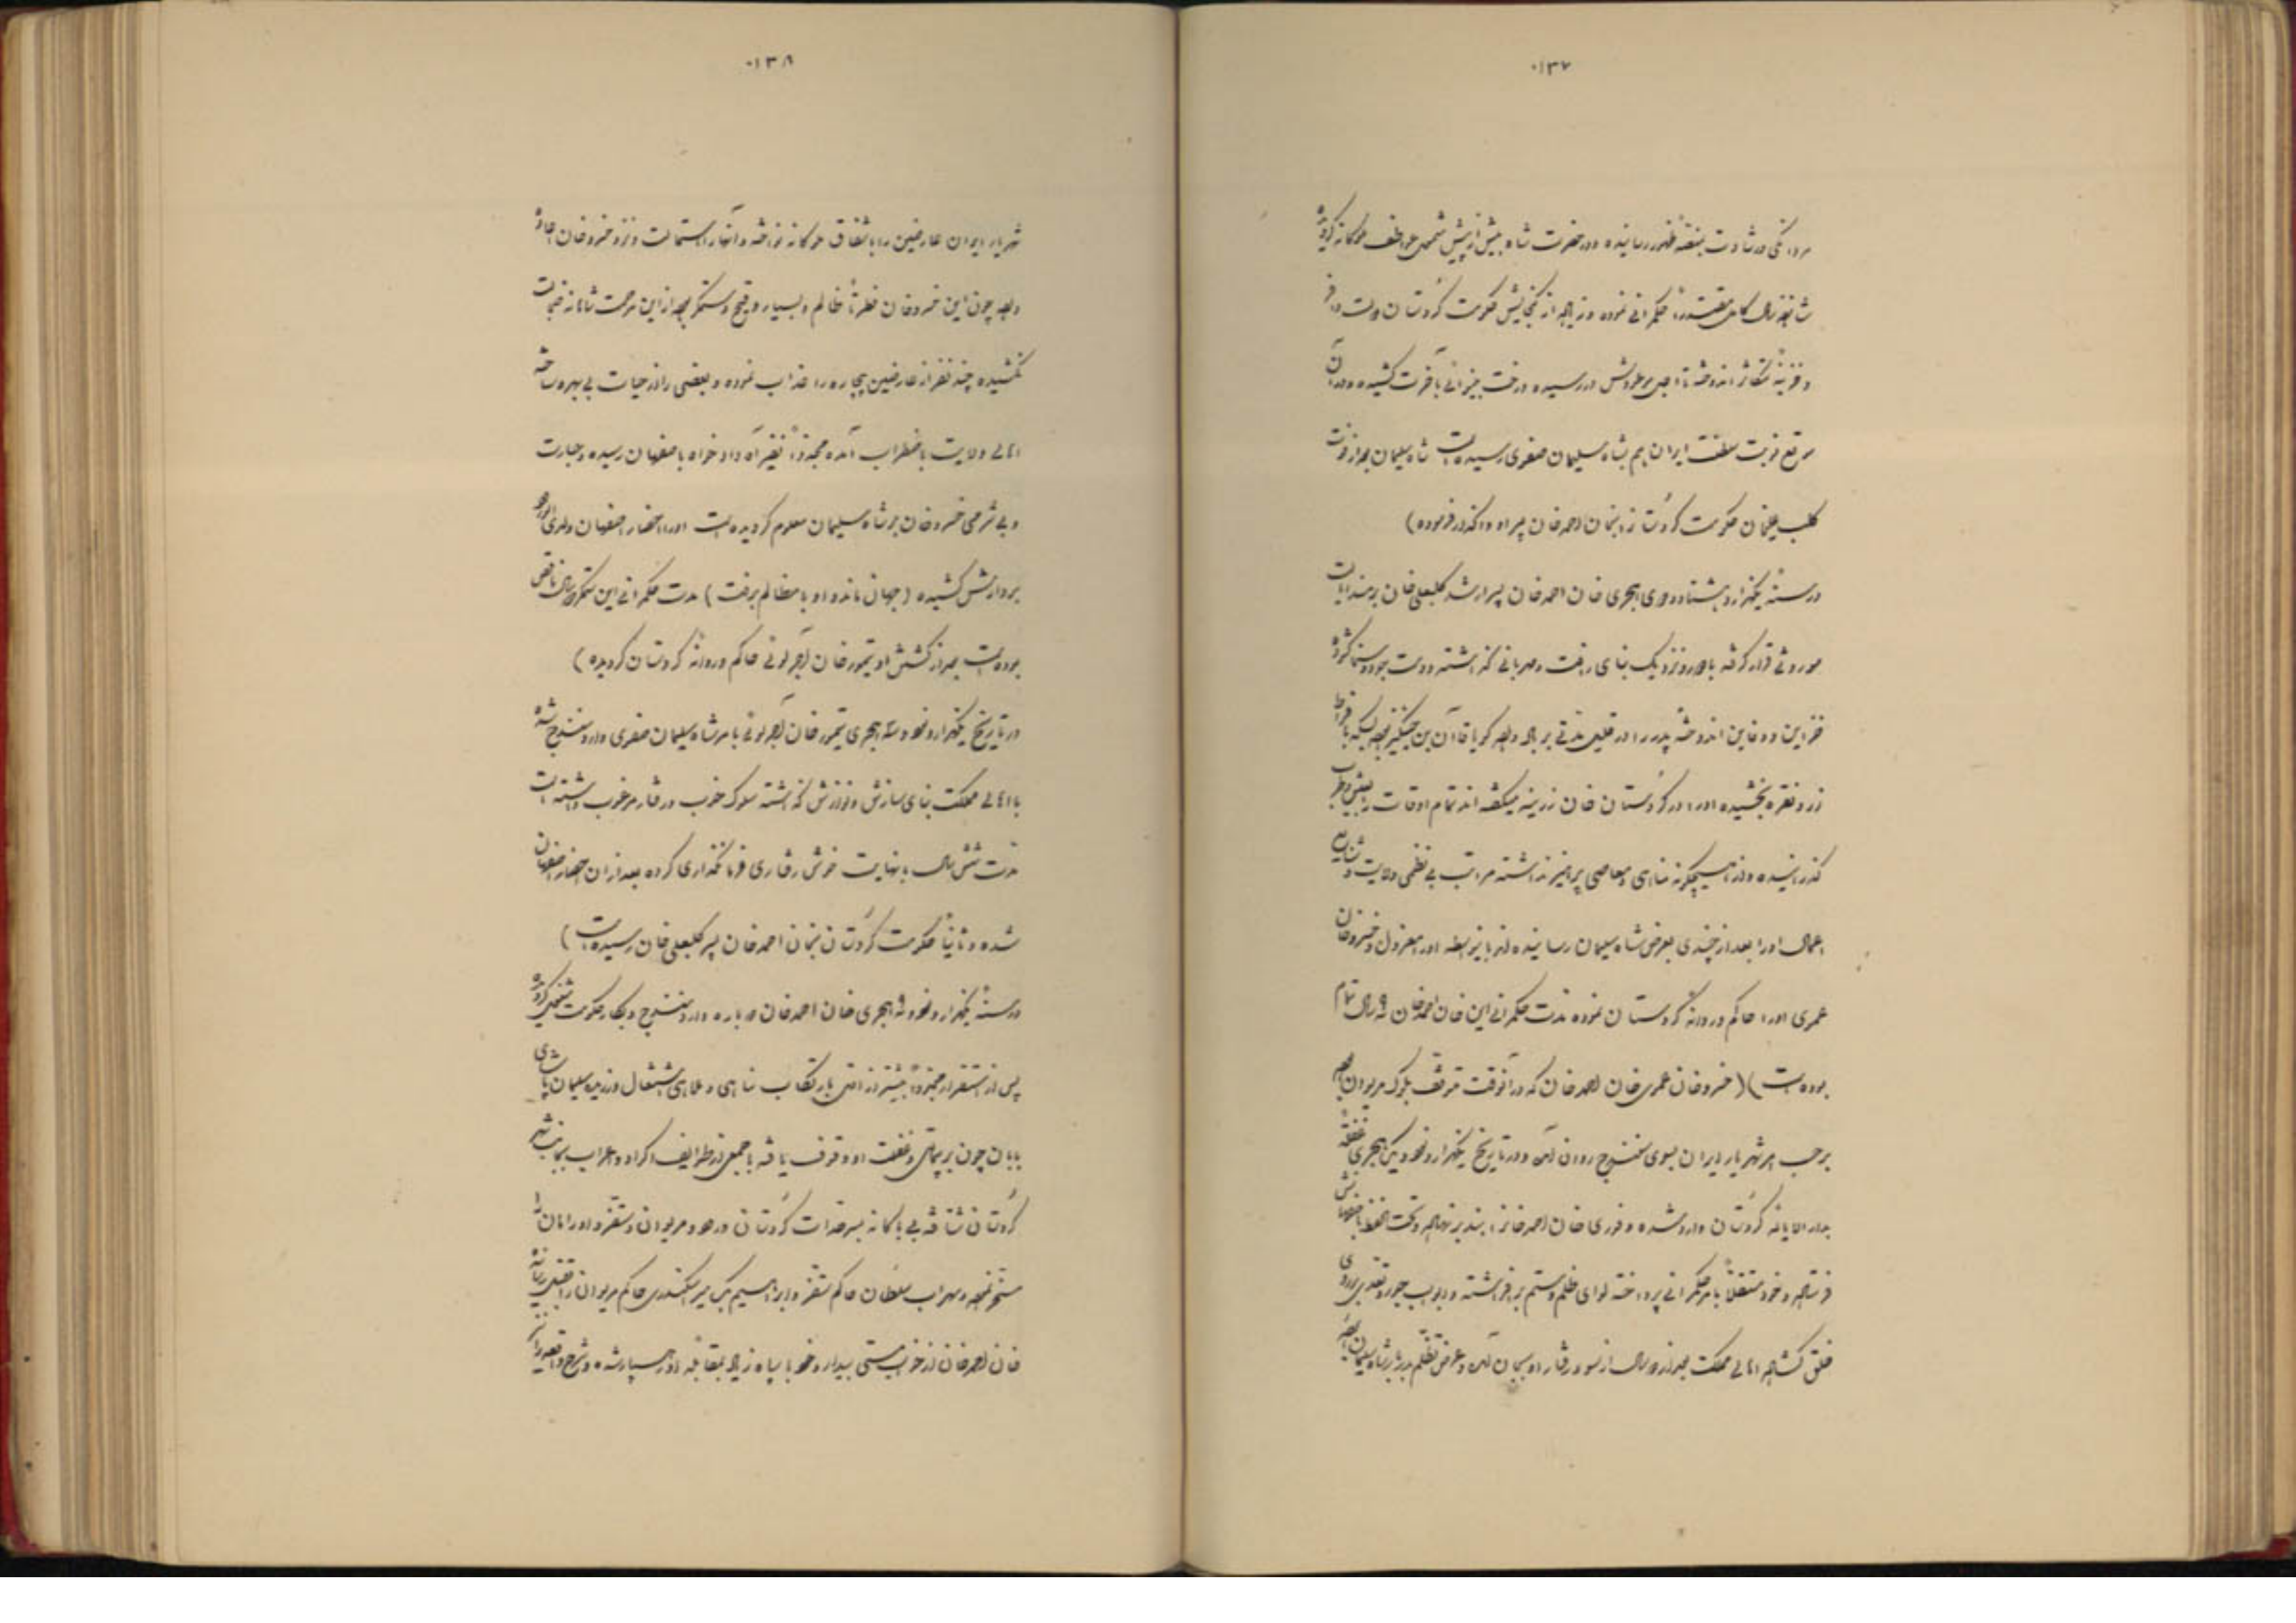 ۰۱۳۷
مردانگی و رشادت بمنصهٔ ظهور رسانیده و در حضرت شاه بیش از پیش مشمول عواطف ملوکانه گردیده
شانزده سال کامل مقتدراً حکمرانی نموده و زیاده از گنجایش حکومت کردستان دولت وافر
و خزینهٔ متکاثر اندوخته تا اجل موعودش در رسیده و رخت بیزانی بآخرت کشیده و در آن
موقع نوبت سلطنت ایران هم بشاه سلیمان صفوی رسیده است شاه سلیمان بعد از فوت
کلبعلیخان حکومت کردستان را بخان احمد خان پسر او واگذار فرموده)
در سنهٔ یکهزار و هشتاد و دوی هجری خان احمد خان پسر ارشد کلبعلی خان بر مسند ایالت
موروثی قرار گرفته با دور و نزدیک بنای رأفت و مهربانی گذاشته و دست جود و سخا گشوده
خزاین و دفاین اندوختهٔ پدر را در قلیل مدتی بر باد داده گویا قاآن بن چنگیز بوده بسکه بافراط
زر و نقره بخشیده او را در کردستان خان زرینه میگفته اند تمام اوقات را بعیش و طرب
گذرانیده و از هیچگونه مناهی و معاصی پرهیز نداشته مراتب بی نظمی ولایت و شنایع
اعمال او را بعد از چندی بعرض شاه سلیمان رسانیده اند باینواسطه او را معزول و خسرو خان
عموی او را حاکم و روانهٔ کردستان نموده مدت حکمرانی این خان احمد خان نه سال تمام
بوده است) (خسرو خان عموی خان احمد خان که در آنوقت متوقف بلوک مریوان بوده
برحسب امر شهریار ایران بسوی سنندج روان آمده و در تاریخ یکهزار و نود و یک هجری بغتةً
بدار الایالهٔ کردستان وارد شده و فوری خان احمد خان را ببند بر نهاده و تحت الحفظ باصفهانش
فرستاده و خود مستقلاً بامر حکمرانی پرداخته لوای ظلم و ستم برافراشته و ابواب جور و تعدی بروی
خلق گشاده اهالی مملکت بعد از دو سال از سوء رفتار او بجان آمده و عرض تظلم بدربار شاه سلیمان برده
۰۱۳۸
شهریار ایران عارضین را باشفاق ملوکانه نواخته و آنها را استمالت و نزد خسرو خان اعاده
داده چون این خسرو خان فطرتاً ظالم و بسیار وقیح و ستمگر بوده از این مرحمت شاهانه خجالت
نکشیده چند نفر از عارضین بیچاره را عذاب نموده و بعضی را از حیات بی بهره ساخته
اهالی ولایت باضطراب آمده مجدداً بنفیر آه و دادخواه باصفهان رسیده و جسارت
و بی شرمی خسرو خان بر شاه سلیمان معلوم گردیده است او را احضار اصفهان و لدی الورود
بردارش کشیده (جهان ماند و او با مظالم برفت) مدت حکمرانی این ستمگر دو سال ناقص
بوده است بعد از کشتش او تیمور خان آجرلوئی حاکم و روانهٔ کردستان گردیده)
در تاریخ یکهزار و نود و سه هجری تیمور خان آجرلوئی بامر شاه سلیمان صفوی وارد سنندج شده
با اهالی مملکت بنای سازش و نوازش گذاشته سلوک خوب و رفتار مرغوب داشته است
مدت شش سال با نهایت خوش رفتاری فرمانگذاری کرده بعد از آن احضار اصفهان
شده و ثانیاً حکومت کردستان بخان احمد خان پسر کلبعلی خان رسیده است)
در سنهٔ یکهزار و نود و نه هجری خان احمد خان دوباره وارد سنندج و بکار حکومت مشغول گردیده
پس از استقرار مجدداً بیشتر از اول بارتکاب مناهی و ملاهی اشتغال ورزیده سلیمان پاشای
بابان چون بر بیحالی و غفلت او وقوف یافته با جمعی از طوایف اکراد و اعراب بجانب شهر
کردستان شتافته بی باکانه بسرحدات کردستان ورود و مریوان و سقز و اورامان را
مسخر نموده و سهراب سلطان حاکم سقز و ابراهیم بیک میر اسکندری حاکم مریوان را بقتل رسانیده
خان احمد خان از خواب مستی بیدار و خود با سپاه زیاد بمقابلهٔ او رهسپار شده و شرح واقعه را